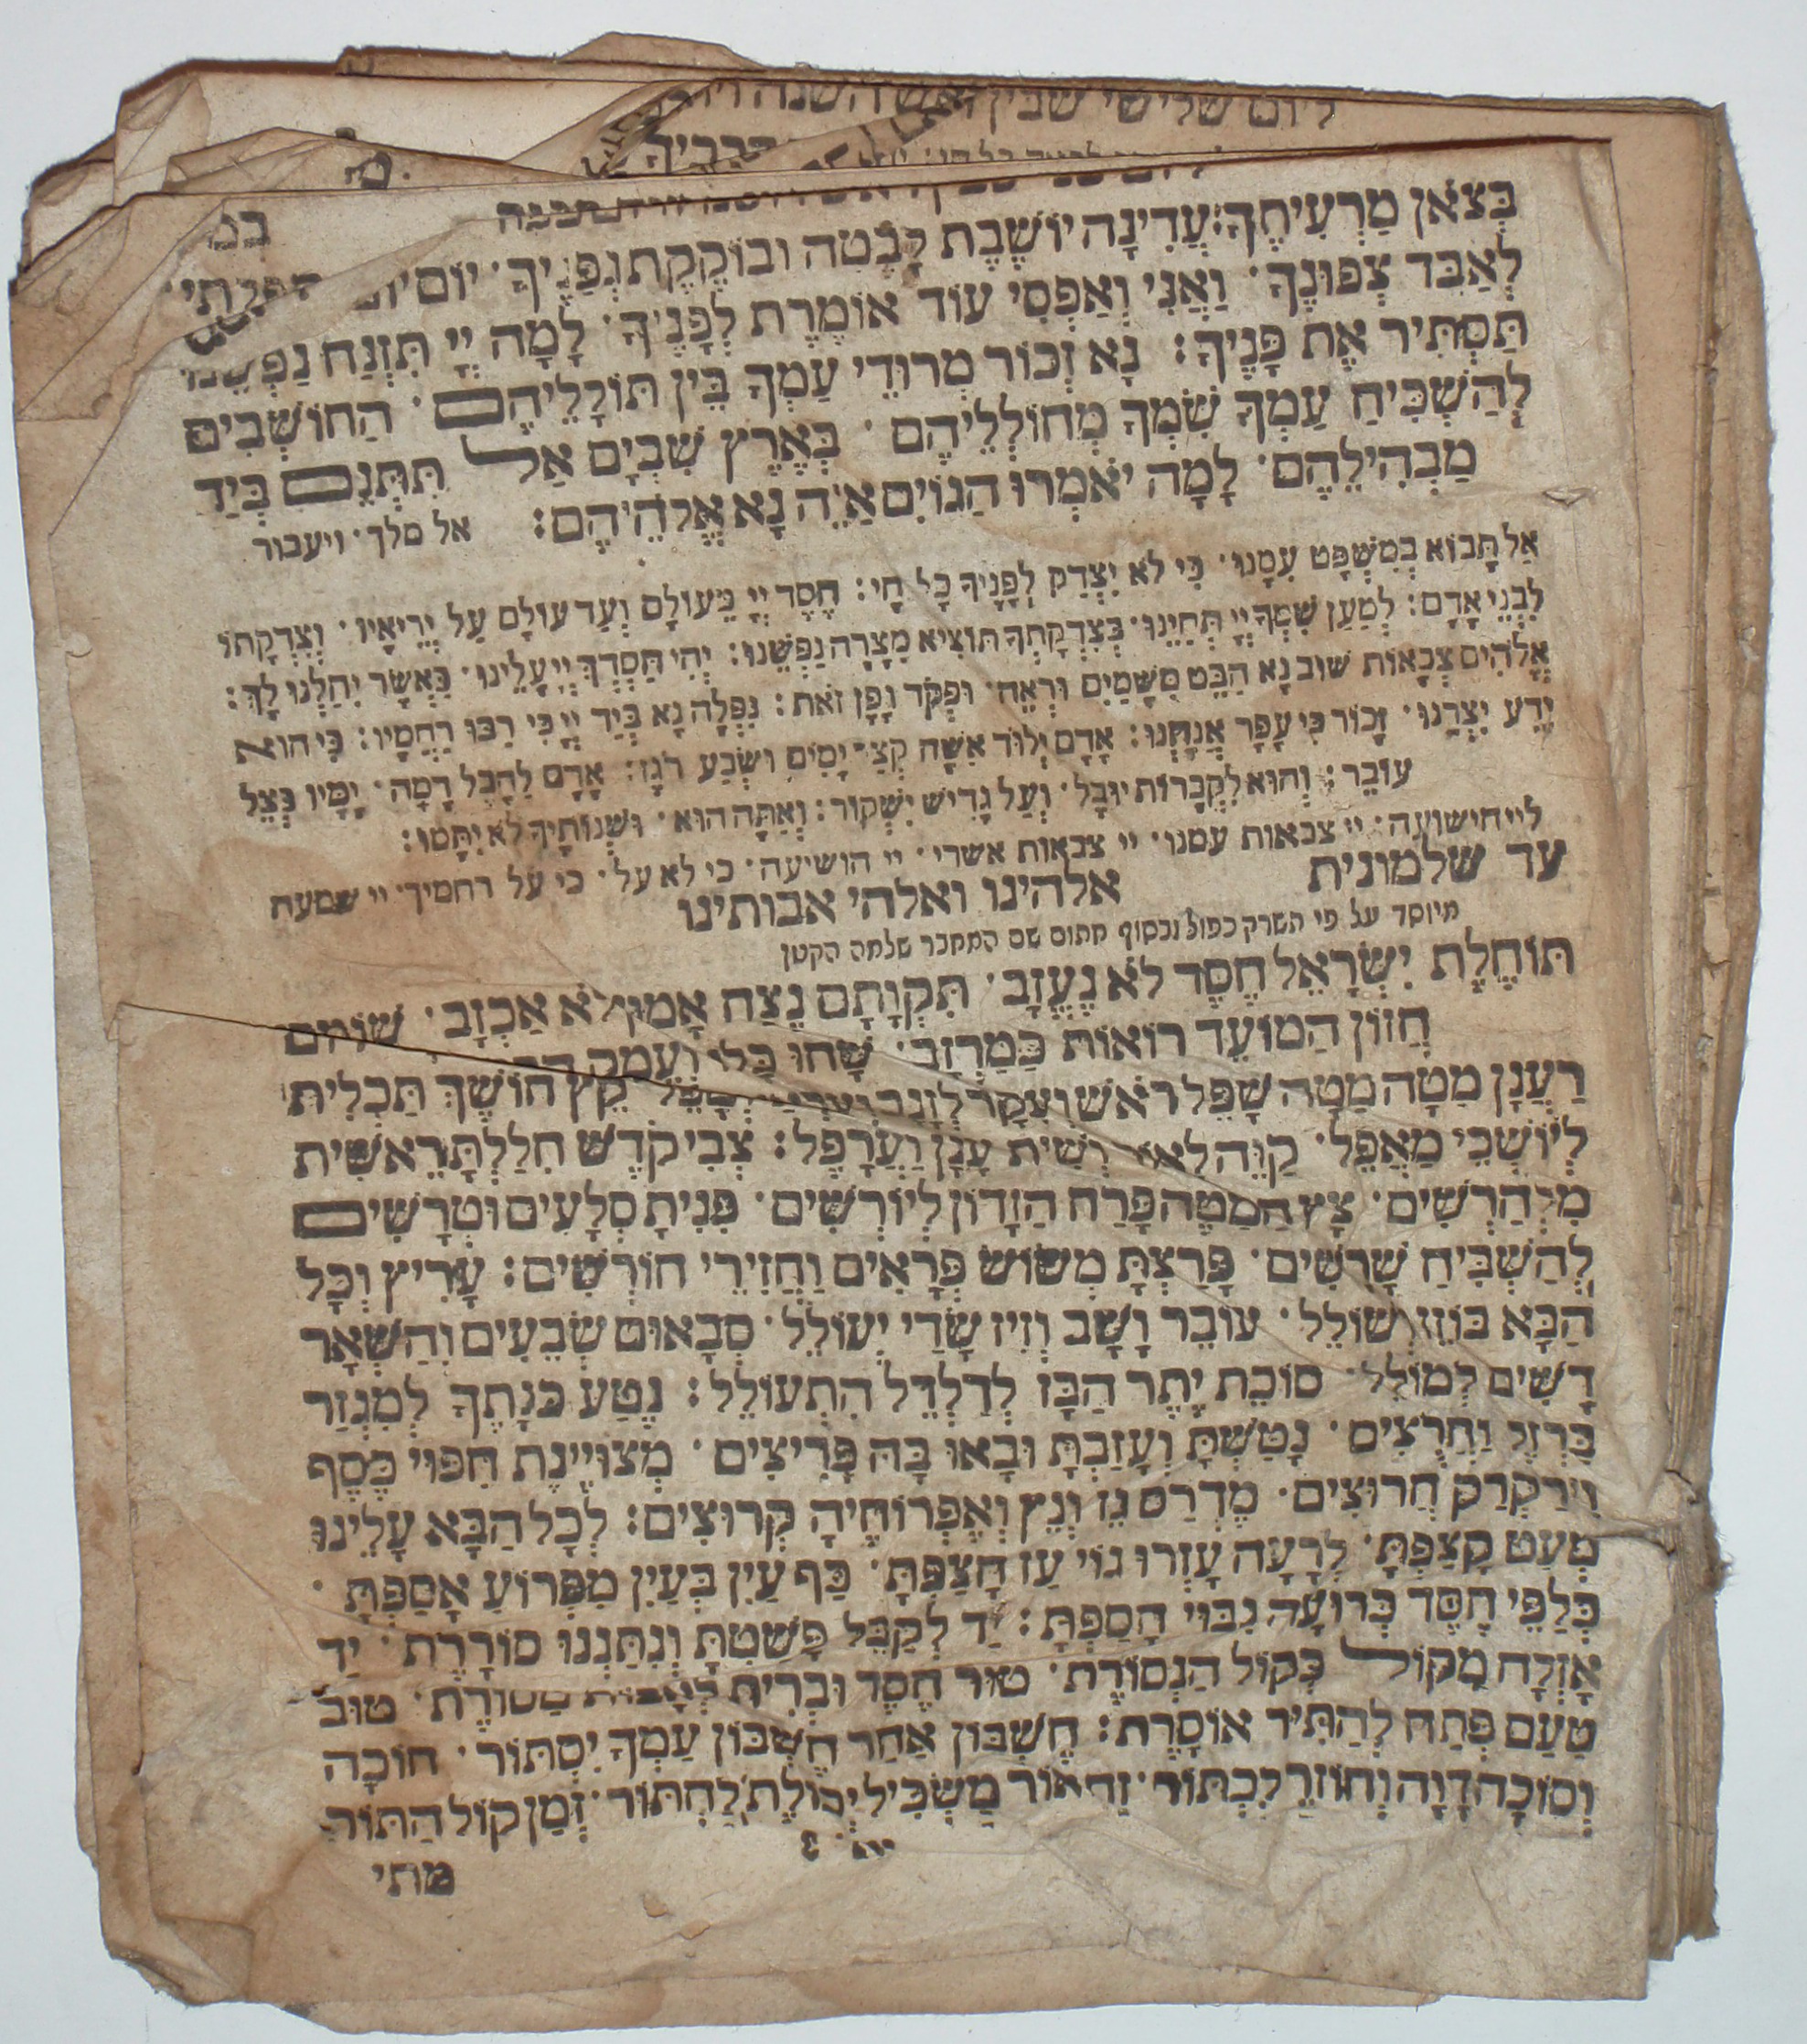 ליום שלישי שבין ראש השנה
בְּצֹאן מַרְעִיתֶךָ: עֲדִינָה יוֹשֶׁבֶת לָבֶטַה וּבוֹקֶקֶת גְּפַנֶיךָ· יוֹם
לְאַבֵּד צְפוּנֶךָ· וַאֲנִי וְאַפְסִי עוֹד אוֹמֶרֶת לְפָנֶיךָ· לָמָה יְיָ תִּזְנַח
תַּסְתִּיר אֶת פָּנֶיךָ: נָא זְכוֹר מְרוּדֵי עַמְּךָ בֵּין תּוֹלָלֵיהֶם· הַחוֹשְׁבִים
לְהַשְׁכִּיחַ עַמְּךָ שִׁמְךָ מְּחוֹלְלֵיהֶם· בְּאֶרֶץ שִׁבְיָם אַל תִּתְּנֵם בְּיַד
מַבְהִילֵהֶם· לָמָה יֹאמְרוּ הַגּוֹיִם אַיֵּה נָא אֱלֹהֵיהֶם: אל מלך· ויעבור
אַל תָּבוֹא בְּמִשְׁפָּט עִמָּנוּ· כִּי לֹא יִצְדַּק לְפָנֶיךָ כָל חָי: חֶסֶד יְיָ מֵעוֹלָם וְעַד עוֹלָם עַל יְרֵיאָיו· וְצִדְקָתוֹ
לִבְנֵי אָדָם: לְמַעַן שִׁמְךָ יְיָ תְּחַיֵּנוּ· בְּצִדְקָתְךָ תּוֹצִיא מִצָּרָה נַפְשֵׁנוּ: יְהִי חַסְדְּךָ יְיָ עָלֵינוּ· כַּאֲשֶׁר יִחַלְנוּ לָךְ:
אֱלֹהִים צְבָאוֹת שׁוּב נָא הַבֵּט מִשָּׁמַיִם וּרְאֵה· וּפְקֹד גֶּפֶן זֹאת: נִפְּלָה נָא בְּיַד יְיָ כִּי רַבּוּ רַחֲמָיו: כִּי הוּא
יָדַע יִצְרֵנוּ· זָכוֹר כִּי עָפָר אֲנָחְנוּ: אָדָם יְלוּד אִשָּׁה קְצַר יָמִים וּשְׂבַע רֹגֶז: אָדָם לַהֶבֶל דָּמָה· יָמָיו כְּצֵל
עוֹבֵר: וְהוּא לִקְבָרוֹת יוּבָל· וְעַל גָּדִישׁ יִשְׁקוֹד: וְאַתָּה הוּא· וּשְׁנוֹתֶיךָ לֹא יִתָּמּוּ:
ליי הישועה· יי צבאות עמנו· יי צבאות אשרי· יי הושיעה· כי לא על· כי על רחמיך· יי שמעה
עד שלמונית אלהינו ואלהי אבותינו
מיוסד על פי תשרק כפול ובסוף חתום שם המחבר שלמה הקטן
תּוֹחֶלֶת יִשְׂרָאֵל חֶסֶד לֹא נֶעֱזָב· תִּקְוָתָם נֶצַח אָמוּן לֹא אַכְזָב· שׁוֹמֵם
חֲזוֹן הַמּוֹעֵד רוֹאוֹת כַּמַּרְזָב· שָׁחוּ כָּלוּ
רַעֲנָן מִטָּה מַטָה שָׁפֵל רֹאשׁ וְעִקָּר לְזָנָב קֵץ חוֹשֶׁךְ תַּכְלִית
לְיוֹשְׁבֵי מַאְפֵּל· קַוֵּה לְאוֹר וְשִׁית עָנָן וַעֲרָפֶל: צְבִי קֹדֶשׁ חִלַּלְתָּ רֵאשִׁית
מִלְּהַרְשִׁים· צָץ הַמַּטֶּה פָּרַח הַזָּדוֹן לְיוֹרְשִׁים· פִּנִּיתָ סְלָעִים וּטְרָשִׁים
לְהַשְׁבִּיחַ שָׁרָשִׁים· פָּרַצְתָּ מְשׂוֹשׂ פְּרָאִים וַחֲזִירֵי חוֹרְשִׁים: עָרִיץ וְכָל
הַבָּא בּוֹזֵז וְשׁוֹלֵל· עוֹבֵר וָשָׁב וְזִיז שָׂדַי יְעוֹלֵל· סְבָאוּם שְׂבֵעִים וְהַשְּׁאָר
דָּשִׁים לְמוֹלֵל· סוֹכַת יֶתֶר הַבָּז לְדַלְדֵּל הִתְעוֹלֵל: נֶטַע כַּנָּתֶךָ לְמִגְזַר
בַּרְזֶל וַחֲרִצִים· נָטַשְׁתָּ וְעָזַבְתָּ וּבָאוּ בָּהּ פָּרִיצִים· מְצוּיֶּינֶת חִפּוּי כֶּסֶף
וִירַקְרַק חֲרוּצִים· מִדְרַס גֵּז וְנֵץ וְאֶפְרוֹחֶיהָ קְרוּצִים: לְכָל הַבָּא עָלֵינוּ
מְעַט קָצַפְתָּ· לְרָעָה עָזְרוּ גּוֹי עַז חָצַפְתָּ· כַּף עַיִן בְּעַיִן מִפְּרוֹעַ אָסַפְתָּ·
כְּלַפֵּי חֶסֶד כְּרוֹעֶה גִבּוּי הֲסַפְתָּ: יַד לְקַבֵּל פָּשַׁטְתָּ וְנִתְּנָנוּ סוֹרֶרֶת· יַד
אָזְלָה מִקּוֹל כְּקוֹל הַנְּסוֹרֶת· טוּר חֶסֶד וּבְרִית לְאָבוֹת מְסוֹרֶת· טוּב
טַעַם פְּתַח לְהַתִּיר אוֹסֶרֶת: חֶשְׁבּוֹן אַחַר חֶשְׁבּוֹן עַמְּךָ יִסְתּוֹר· חוֹכָה
וְסוֹכָה דָּוָה וְחוֹזֵר לִכְתּוֹר· זֹהַר אוֹר מַשְׂכִּיל יְכוֹלֶת לַחְתּוֹר· זְמַן קוֹל הַתּוֹר
מתי